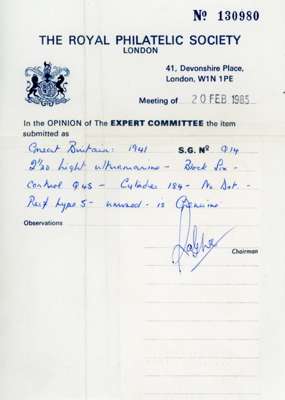 Nº 130980
THE ROYAL PHILATELIC SOCIETY
LONDON
41, Devonshire Place,
London, W1N 1PE
Meeting of 20 FEB 1985
In the OPINION of The EXPERT COMMITTEE the item
submitted as
Great Britain: 1941 S.G. Nº Q14
2½d light ultramarine - Block Six -
control Q45 - Cylinder 184 - No Dot -
Perf type 5 - unused - is Genuine
Observations
Chairman